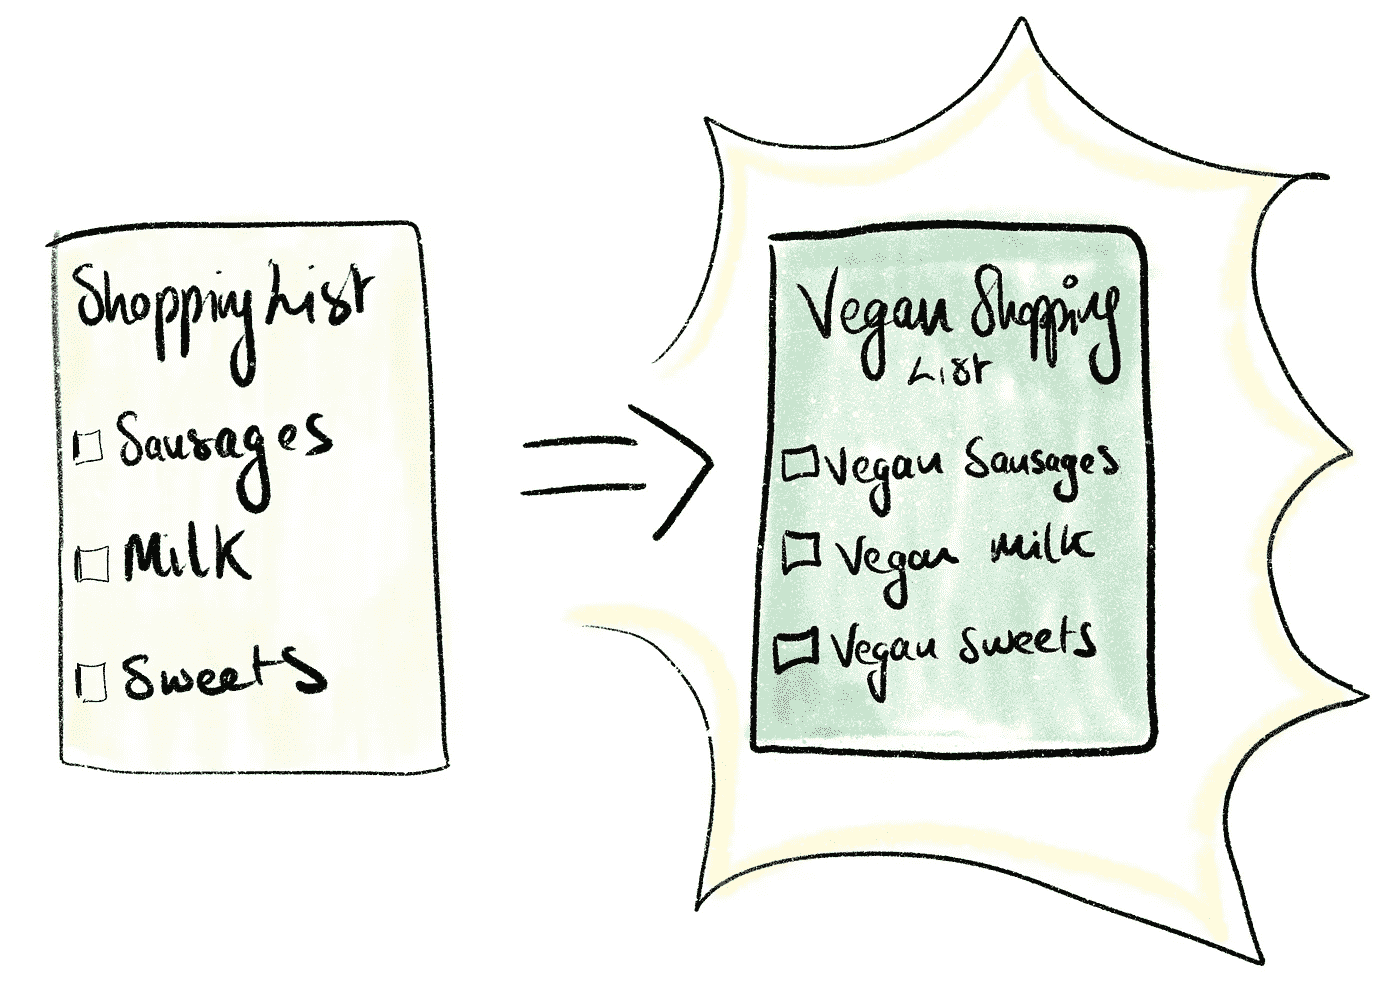 Shopping List
Sausages
Milk
Sweets
Vegan Shopping
List
Vegan Sausages
Vegan Milk
Vegan Sweets